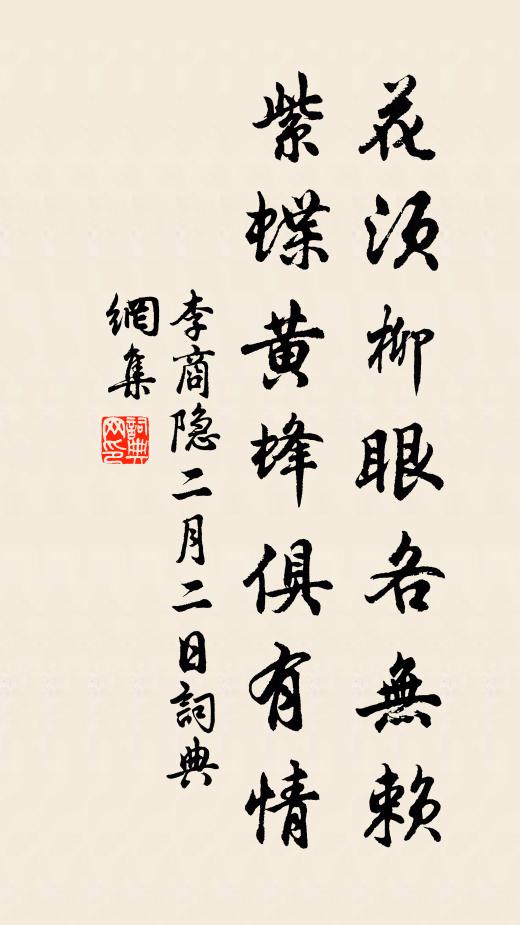 花须柳眼各無赖
紫蝶黄蜂俱有情
李商隐二月二日詞典
網集
詞典網印